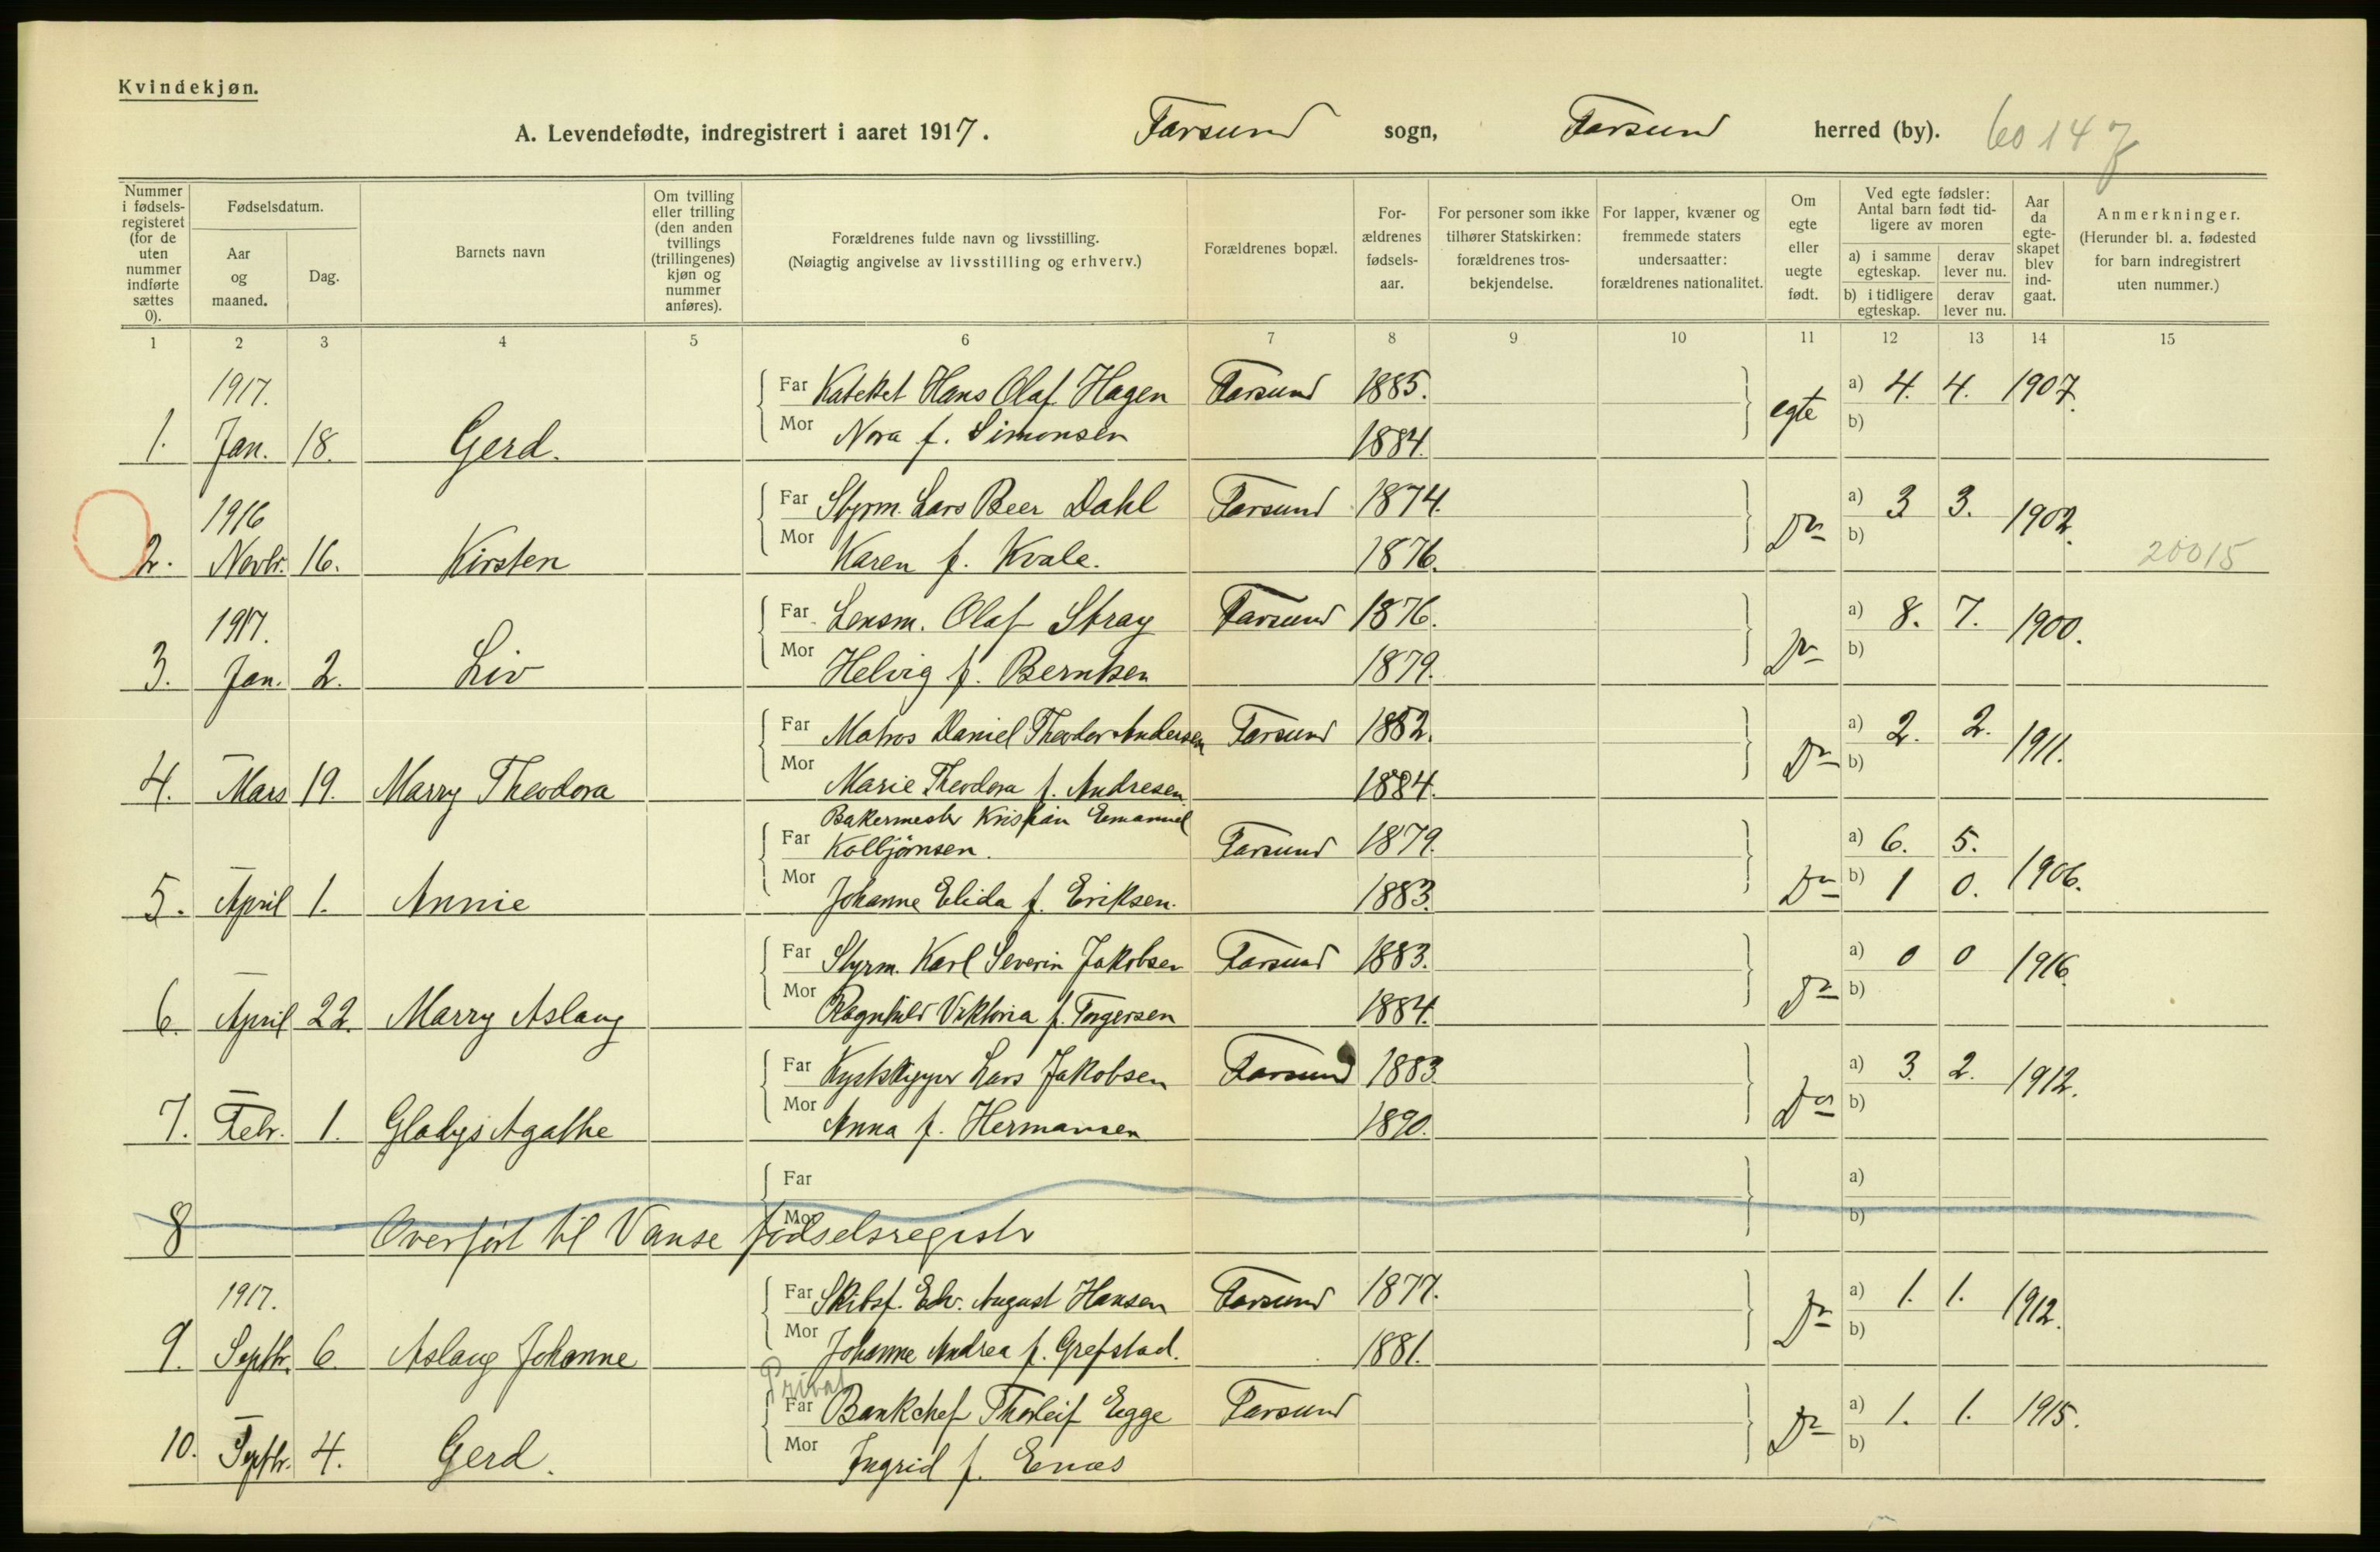 Kvindekjøn.
A. Levendefødte, indregistrert i aaret 1917. Farsund sogn, Farsund herred (by). 60147
Nummer i fødselsregisteret (for de uten nummer indførte sættes 0).
Fødselsdatum.
Aar og maaned.
Dag.
Barnets navn
Om tvilling eller trilling (den anden tvillings (trillingenes) kjøn og nummer anføres).
Forældrenes fulde navn og livsstilling.
(Nøiagtig angivelse av livsstilling og erhverv.)
Forældrenes bopæl.
For-ældrenes fødsels-aar.
For personer som ikke tilhører Statskirken: forældrenes tros-bekjendelse.
For lapper, kvæner og fremmede staters undersaatter: forældrenes nationalitet.
Om egte eller uegte født.
Ved egte fødsler: Antal barn født tid-ligere av moren
a) i samme egteskap. derav lever nu.
b) i tidligere egteskap. derav lever nu.
Aar da egte-skapet blev ind-gaat.
Anmerkninger.
(Herunder bl. a. fødested for barn indregistrert uten nummer.)
1 2 3 4 5 6 7 8 9 10 11 12 13 14 15
1917.
Far Kateket Hans Olaf Hagen Farsund 1885. egte a) 4. 4. 1907.
1. Jan. 18. Gerd. Mor Nora f. Simonsen 1884. b)
1916
Far Styrm. Lars Beer Dahl Farsund 1874. Do a) 3 3. 1902.
2. Novbr. 16. Kirsten Mor Karen f. Kvale. 1876. b) 20015
1917.
Far Lensm. Olaf Stray Farsund 1876. Do a) 8. 7. 1900.
3. Jan. 2. Liv Mor Helvig f. Berntsen 1879. b)
Far Matros Daniel Theodor Andersen Farsund 1882. Do a) 2. 2. 1911.
4. Mars 19. Marry Theodora Mor Marie Theodora f. Andresen 1884. b)
Bakermester Kristian Emanuel
Far Kolbjørnsen. Farsund 1879. a) 6. 5. 1906.
5. April 1. Annie Mor Johanne Elida f. Eriksen. 1883. Do b) 1 0.
Far Styrm. Karl Severin Jakobsen Farsund 1883. a) 0 0 1916.
6. April 22. Marry Aslaug Mor Ragnhild Viktoria f. Torgersen 1884. Do b)
Far Kystskipper Lars Jakobsen Farsund 1883. a) 3. 2. 1912.
7. Febr. 1. Gladys Agathe Mor Anna f. Hermansen 1890. Do b)
Far a)
8 Overført til Vanse fødselsregister Mor b)
1917.
Far Skibsf. Edv. August Hansen Farsund 1877. a) 1. 1. 1912.
9. Septbr. 6. Aslaug Johanne Mor Johanne Andrea f. Grefstad. 1881. Do b)
Privat
Far Bankchef Thorleif Egge Farsund a) 1. 1. 1915.
10. Septbr. 4. Gerd. Mor Ingrid f. Enæs Do b)